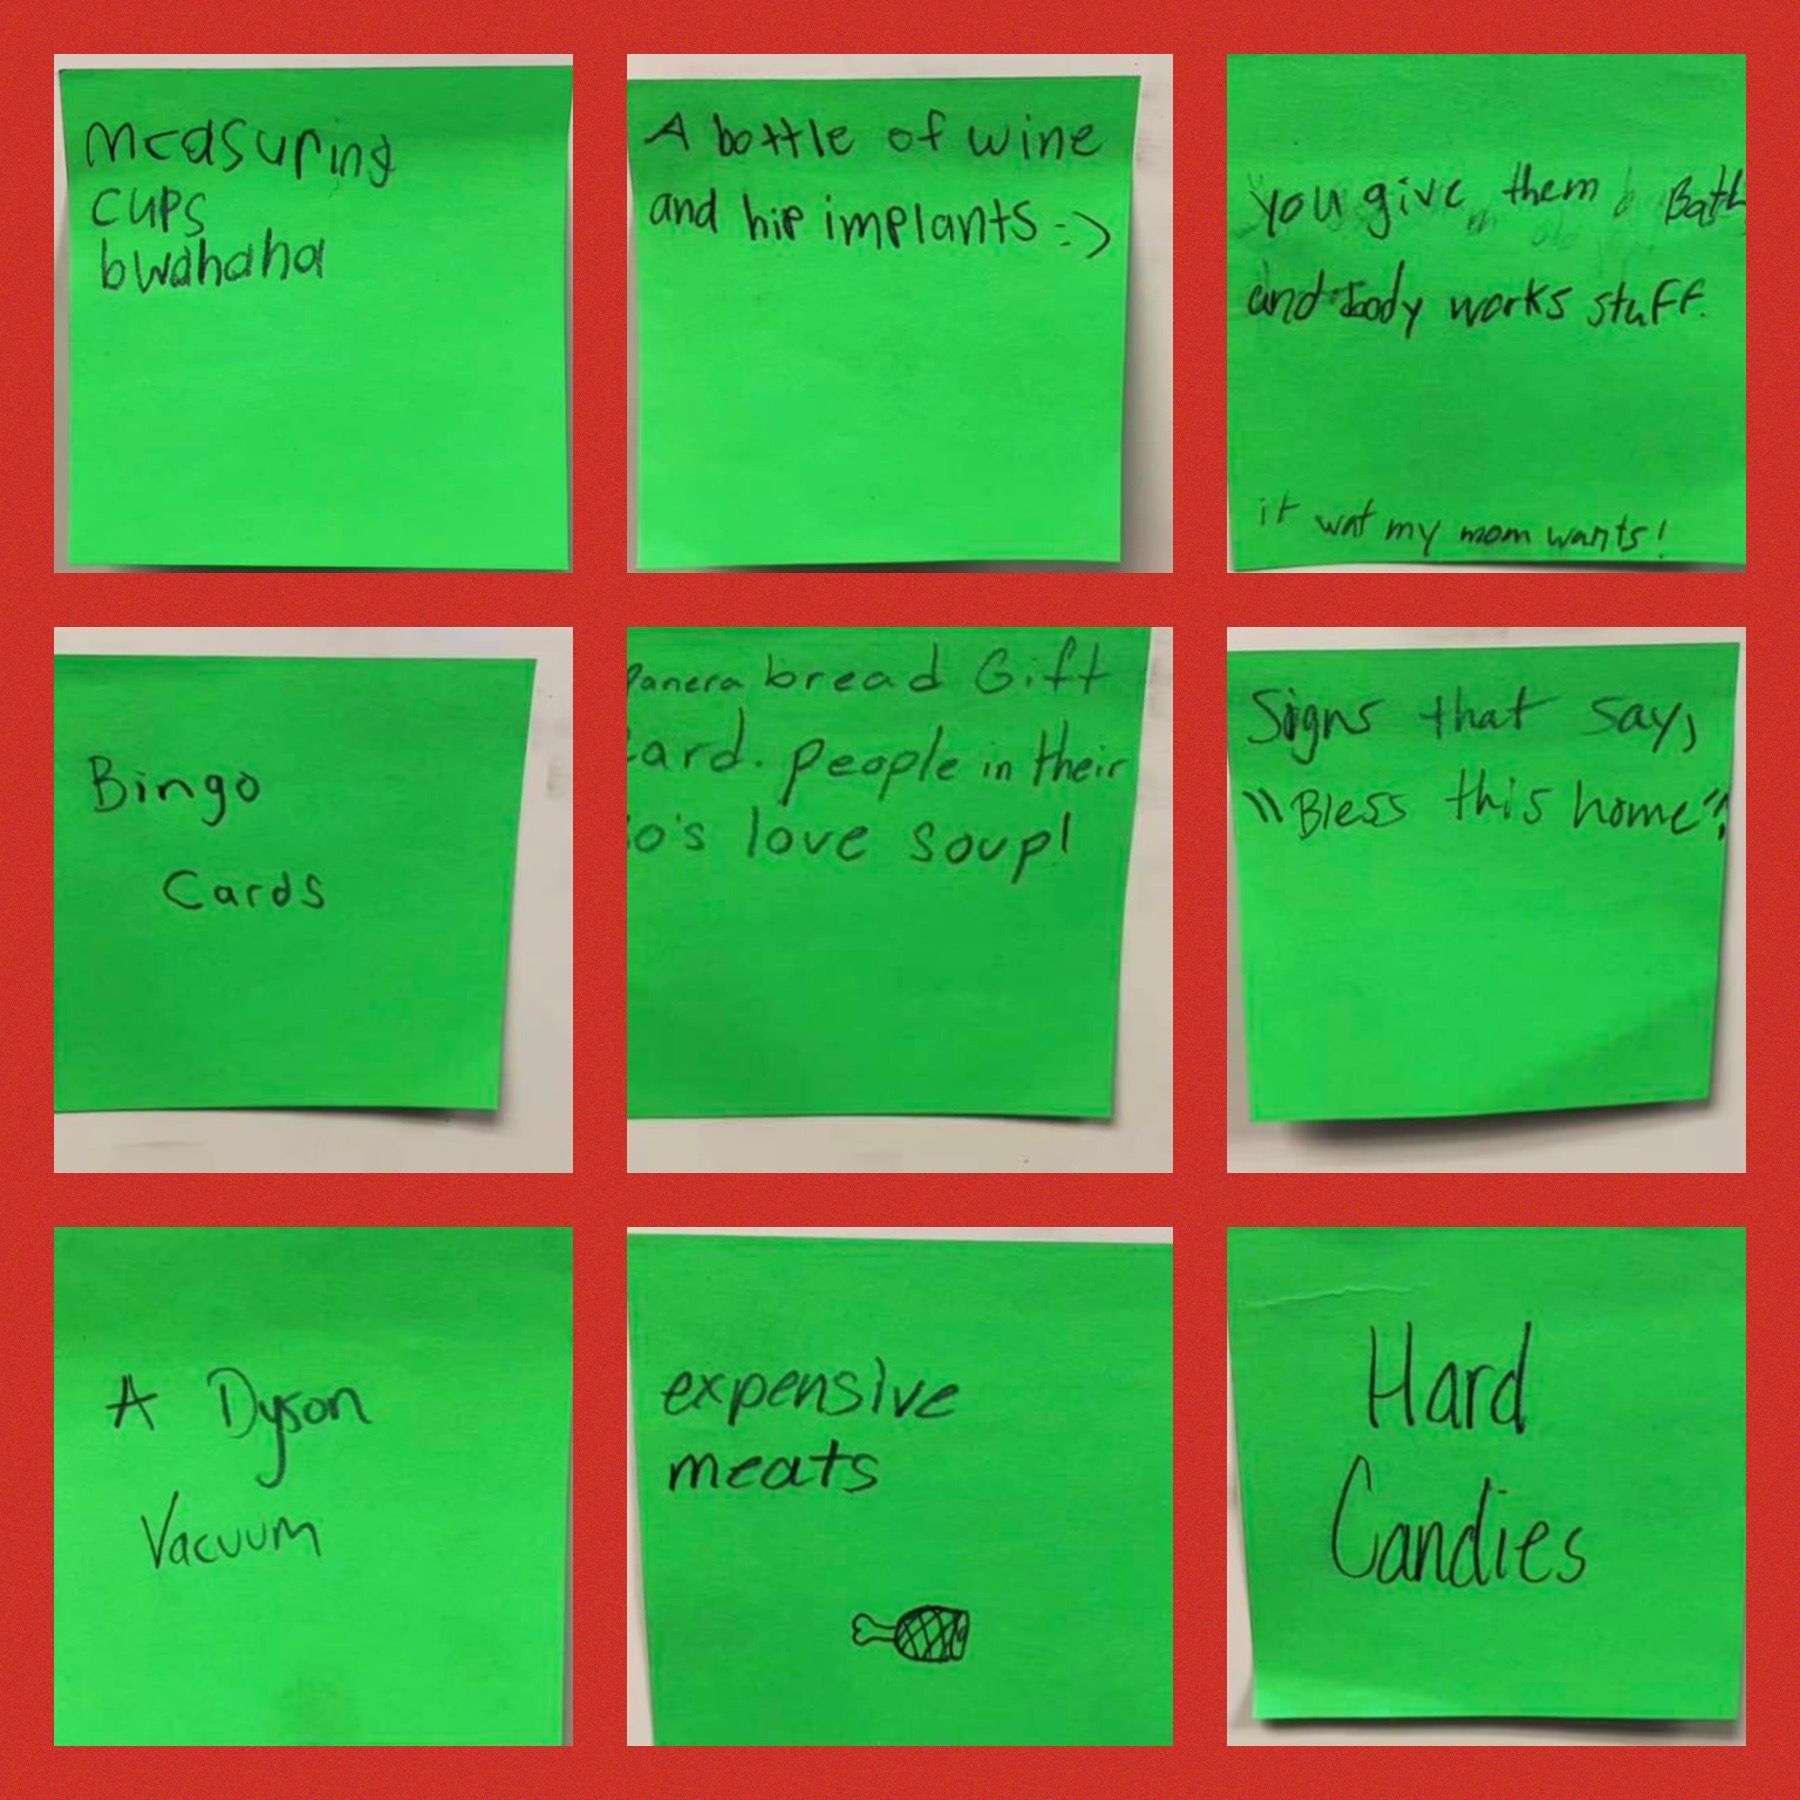 measuring
cups
bwahaha
A bottle of wine
and hip implants :)
you give them Bath
and body works stuff.
it wat my mom wants!
Bingo
Cards
Panera bread Gift
card. people in their
0's love soup!
Signs that say,
"Bless this home".
A Dyson
Vacuum
expensive
meats
Hard
Candies